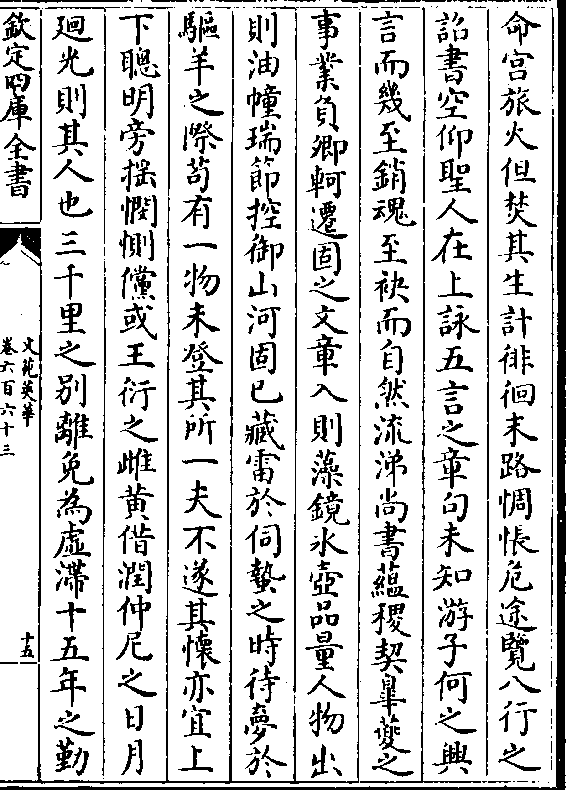 命宫旅火但焚其生計徘徊末路惆悵危途覽八行之
詔書空仰聖人在上詠五言之章句未知游子何之興
言而幾至銷魂至袂而自然流涕尚書蘊稷契臯夔之
事業負卿軻遷固之文章入則藻鏡氷壺品量人物出
則油幢瑞節控御山河固已藏雷於伺蟄之時待夢於
驅羊之際苟有一物未登其所一夫不遂其懷亦宜上
下聰明旁揺惻惻儻或王衍之雌黄借潤仲尼之日月
廻光則其人也三千里之别離免為虚滯十五年之勤
欽定四庫全書
文苑英華
卷六百六十三
十五